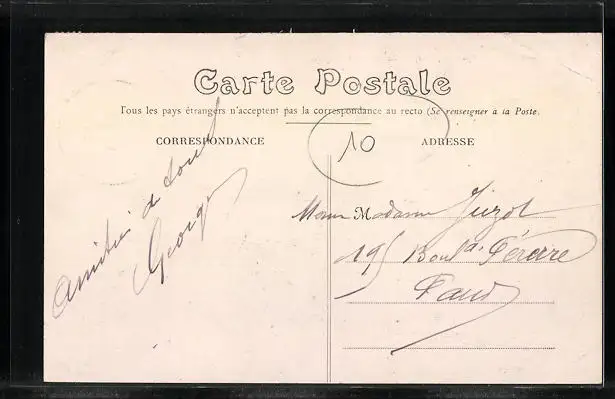 Carte Postale
Tous les pays étrangers n'acceptent pas la correspondance au recto (Se renseigner à la Poste.
CORRESPONDANCE
ADRESSE
10
Amitiés à tous
Georges
M Madame Juzot
195 Boul. Péreire
Paris